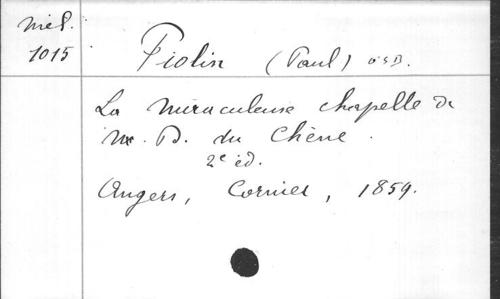 Mél.
1015
Piolin (Paul) O.S.B.
La miraculeuse chapelle de
N. D. du Chêne.
2e éd.
Angers, Cosnier, 1859.